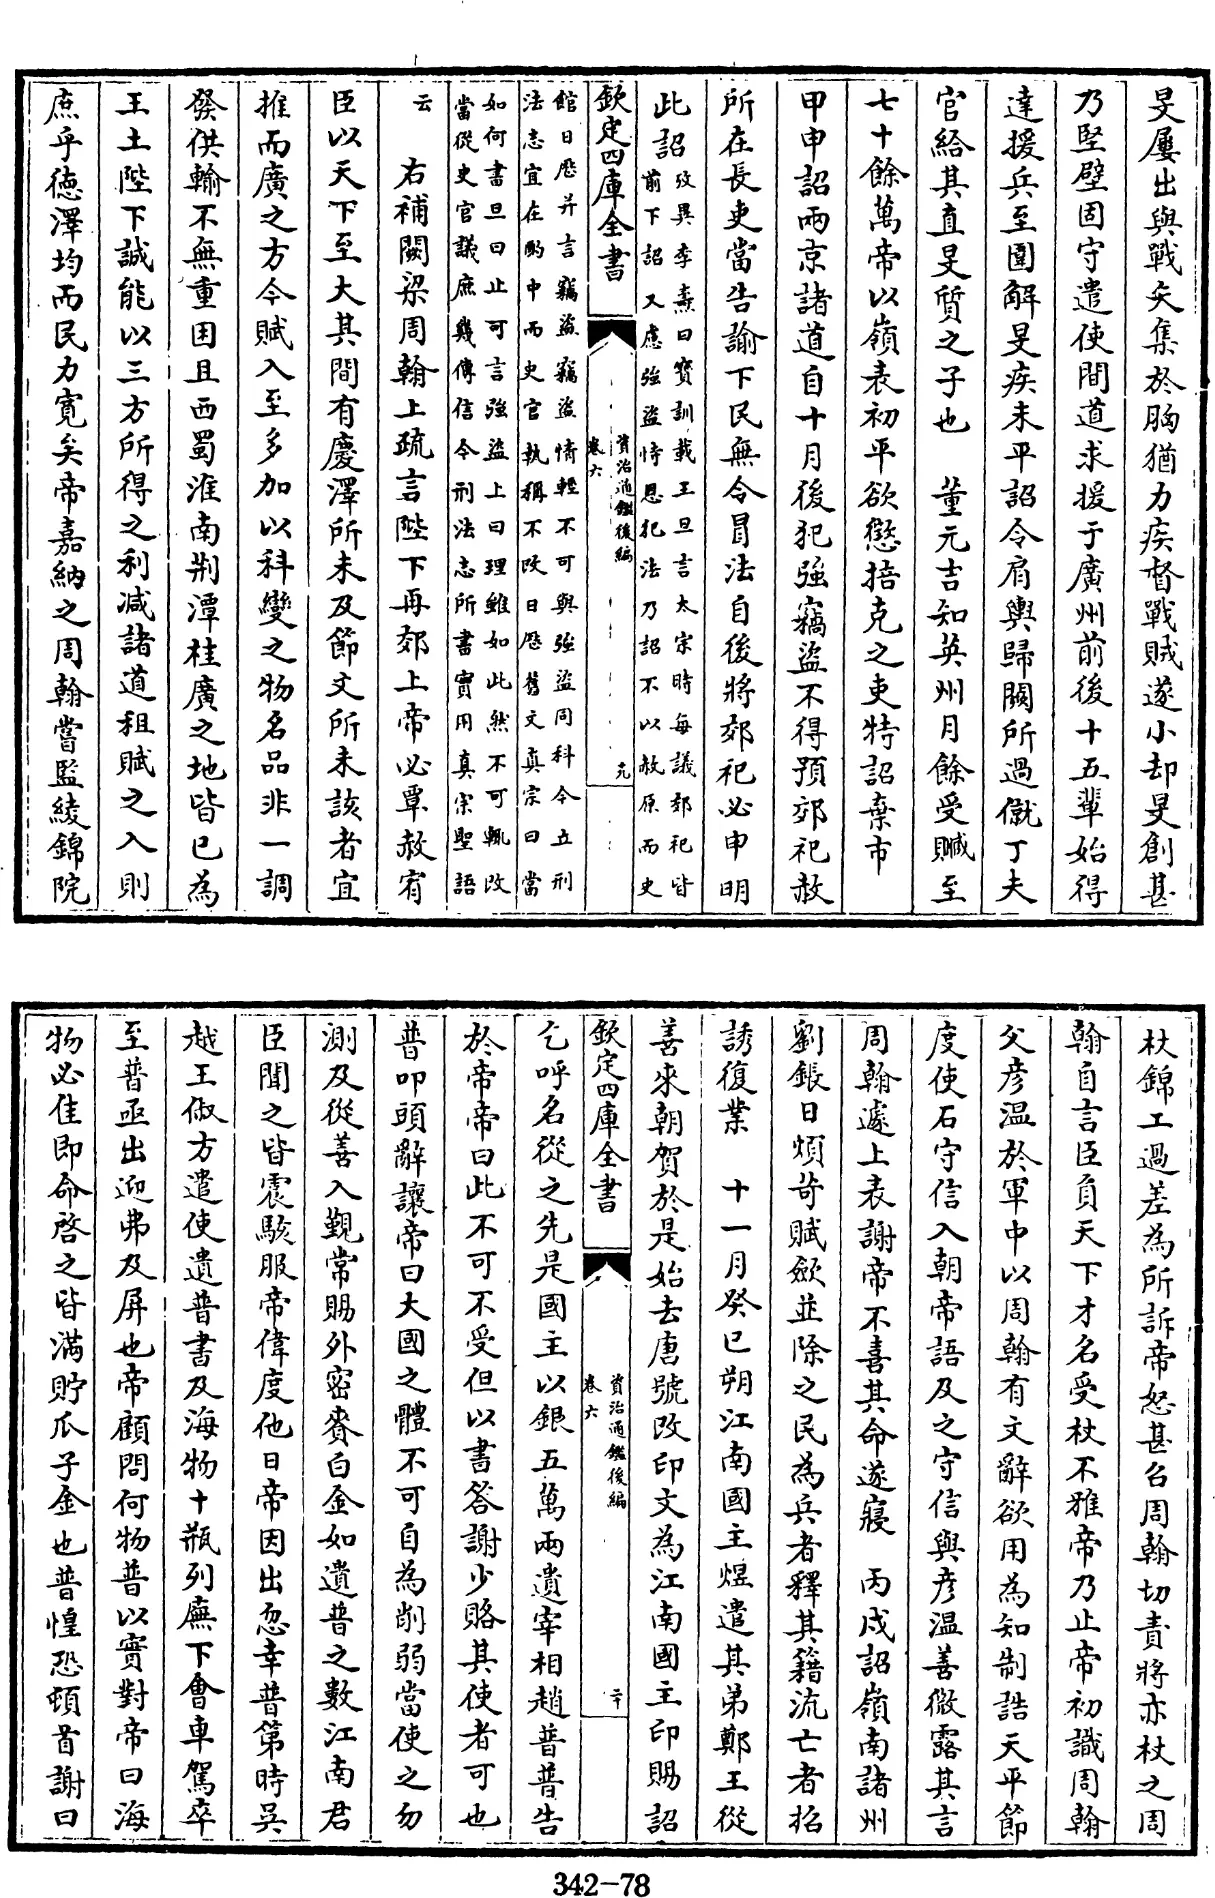 旻屢出與戰矢集於胸猶力疾督戰賊遂小却旻創甚
乃堅壁固守遣使間道求援于廣州前後十五輩始得
達援兵至圍解旻疾未平詔令肩輿歸闕所過僦丁夫
官給其直旻質之子也　董元吉知英州月餘受贓至
七十餘萬帝以嶺表初平欲懲掊克之吏特詔棄市
甲申詔兩京諸道自十月後犯強竊盜不得預郊祀赦
所在長吏當告諭下民無令冒法自後將郊祀必申明
此詔
攷異李燾曰寳訓載王旦言太宗時每議郊祀皆
前下詔又慮強盜恃恩犯法乃詔不以赦原而史
欽定四庫全書
資治通鑑後編
卷六
元
館日厯并言竊盜竊盜情輕不可與強盜同科今立刑
法志宜在酌中而史官執稱不改日厯舊文真宗曰當
如何書旦曰止可言強盜上曰理雖如此然不可輒改
當從史官議庶幾傳信今刑法志所書實用真宗聖語
云　右補闕梁周翰上疏言陛下再郊上帝必覃赦宥
臣以天下至大其間有慶澤所未及節文所未該者宜
推而廣之方今賦入至多加以科變之物名品非一調
發供輸不無重困且西蜀淮南荆潭桂廣之地皆已為
王土陛下誠能以三方所得之利减諸道租賦之入則
庶乎徳澤均而民力寛矣帝嘉納之周翰嘗監綾錦院
杖錦工過差為所訴帝怒甚召周翰切責將亦杖之周
翰自言臣負天下才名受杖不雅帝乃止帝初識周翰
父彦温於軍中以周翰有文辭欲用為知制誥天平節
度使石守信入朝帝語及之守信與彦温善微露其言
周翰遽上表謝帝不喜其命遂寢　丙戌詔嶺南諸州
劉鋹日煩苛賦斂並除之民為兵者釋其籍流亡者招
誘復業　十一月癸巳朔江南國主煜遣其弟鄭王從
善來朝賀於是始去唐號改印文為江南國主印賜詔
欽定四庫全書
資治通鑑後編
卷六
二十
乞呼名從之先是國主以銀五萬兩遺宰相趙普普告
於帝帝曰此不可不受但以書答謝少賂其使者可也
普叩頭辭讓帝曰大國之體不可自為削弱當使之勿
測及從善入覲常賜外密賚白金如遺普之數江南君
臣聞之皆震駭服帝偉度他日帝因出忽幸普第時吳
越王俶方遣使遺普書及海物十瓶列廡下會車駕卒
至普亟出迎弗及屏也帝顧問何物普以實對帝曰海
物必佳即命啓之皆滿貯瓜子金也普惶恐頓首謝曰
342-78